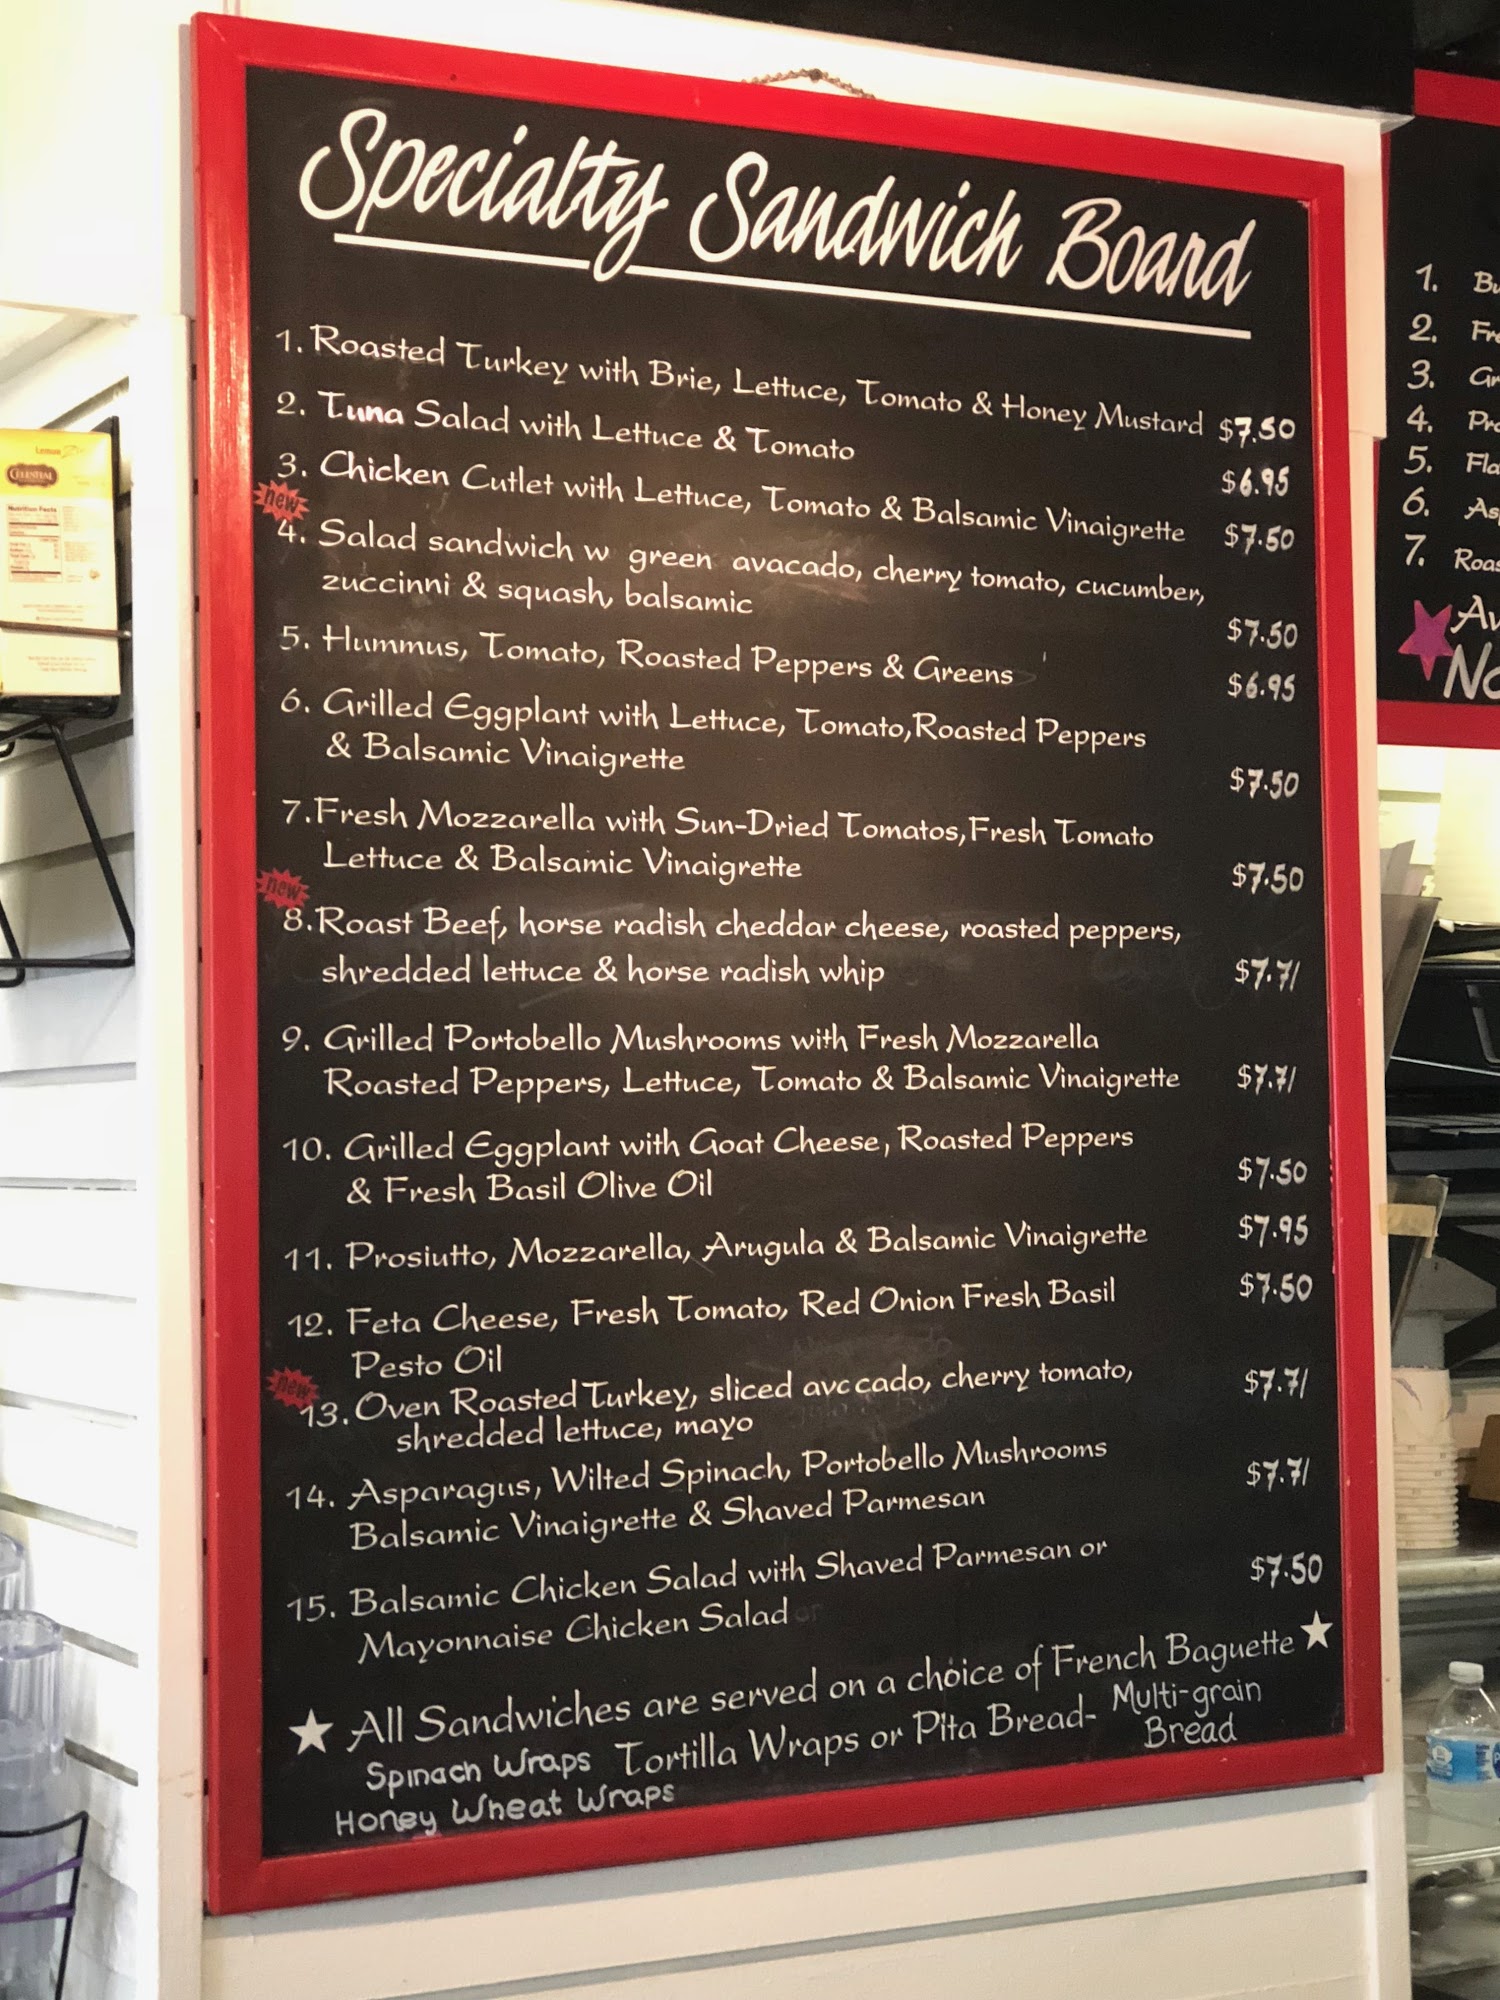 Specialty Sandwich Board
1. Roasted Turkey with Brie, Lettuce, Tomato & Honey Mustard $7.50
2. Tuna Salad with Lettuce & Tomato $6.95
3. Chicken Cutlet with Lettuce, Tomato & Balsamic Vinaigrette $7.50
new
4. Salad sandwich w green avacado, cherry tomato, cucumber,
zuccinni & squash, balsamic $7.50
5. Hummus, Tomato, Roasted Peppers & Greens $6.95
6. Grilled Eggplant with Lettuce, Tomato, Roasted Peppers
& Balsamic Vinaigrette $7.50
7. Fresh Mozzarella with Sun-Dried Tomatos, Fresh Tomato
Lettuce & Balsamic Vinaigrette $7.50
new
8. Roast Beef, horse radish cheddar cheese, roasted peppers,
shredded lettuce & horse radish whip $7.71
9. Grilled Portobello Mushrooms with Fresh Mozzarella
Roasted Peppers, Lettuce, Tomato & Balsamic Vinaigrette $7.71
10. Grilled Eggplant with Goat Cheese, Roasted Peppers
& Fresh Basil Olive Oil $7.50
11. Prosiutto, Mozzarella, Arugula & Balsamic Vinaigrette $7.95
12. Feta Cheese, Fresh Tomato, Red Onion Fresh Basil $7.50
Pesto Oil
new
13. Oven Roasted Turkey, sliced avccado, cherry tomato,
shredded lettuce, mayo $7.71
14. Asparagus, Wilted Spinach, Portobello Mushrooms
Balsamic Vinaigrette & Shaved Parmesan $7.71
15. Balsamic Chicken Salad with Shaved Parmesan or
Mayonnaise Chicken Salad $7.50
All Sandwiches are served on a choice of French Baguette
Spinach Wraps Tortilla Wraps or Pita Bread- Multi-grain
Bread
Honey Wheat Wraps
1.
2.
3.
4.
5.
6.
7.
Lemon
Celestial
Nutrition Facts